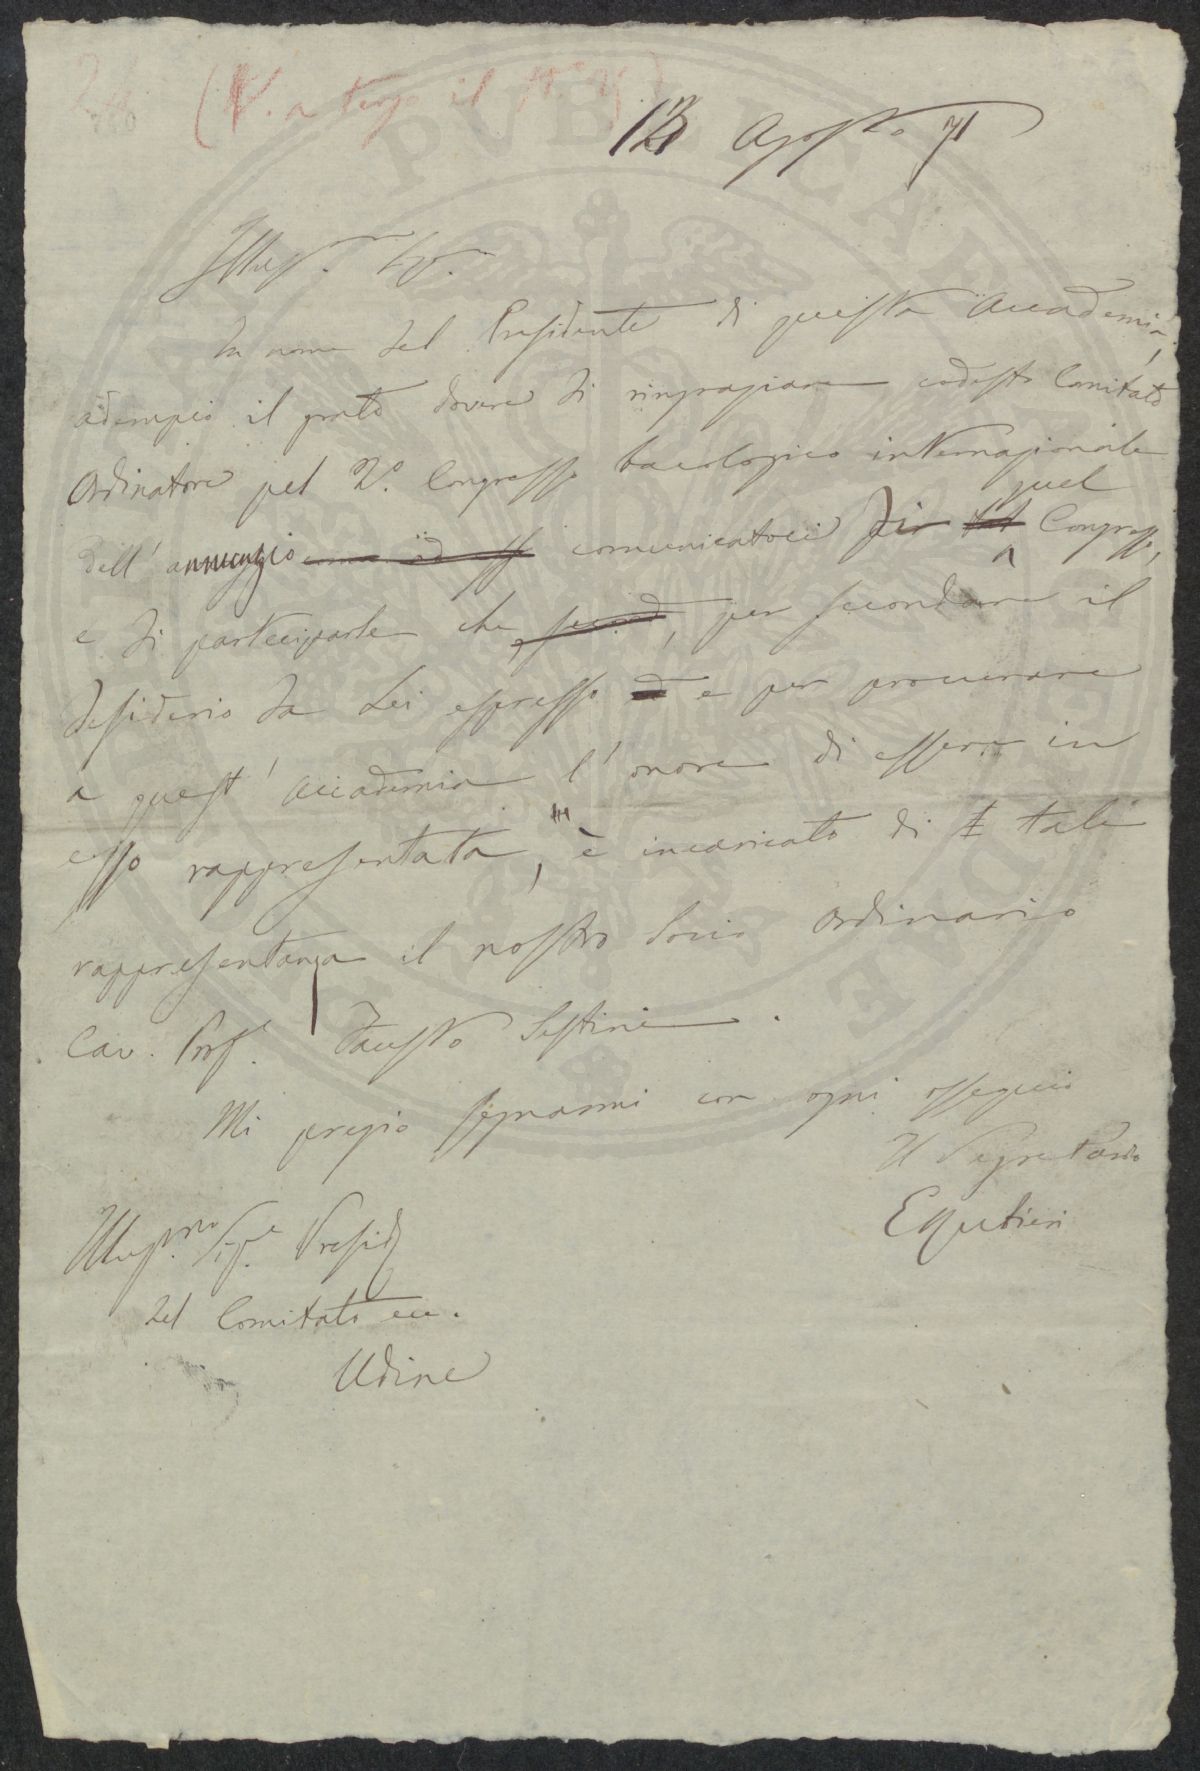 (V. a tergo il N.º
13 Agosto 71
Illus. Sig.
In nome del Presidente di questa Accademia,
adempio il grato dovere di ringraziare codesto Comitato
Ordinatore pel 2.º Congresso bacologico internazionale
dell'annunzio comunicatoci quel Congresso,
e di partecipare che, per secondare il
desiderio da Lei espresso e per procurare
a quest'Accademia l'onore di essere in
esso rappresentata, è incaricato di tale
rappresentanza il nostro Socio Ordinario
Cav. Prof. Fausto Sestini.
Mi pregio segnarmi con ogni ossequio
Il Segretario
Illus.mo Sig.e Presid
del Comitato ecc.
Udine